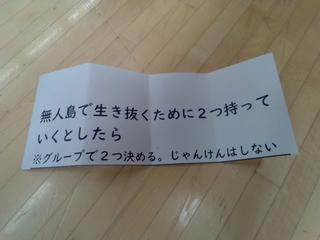 無人島で生き抜くために２つ持って
いくとしたら
※グループで２つ決める。じゃんけんはしない